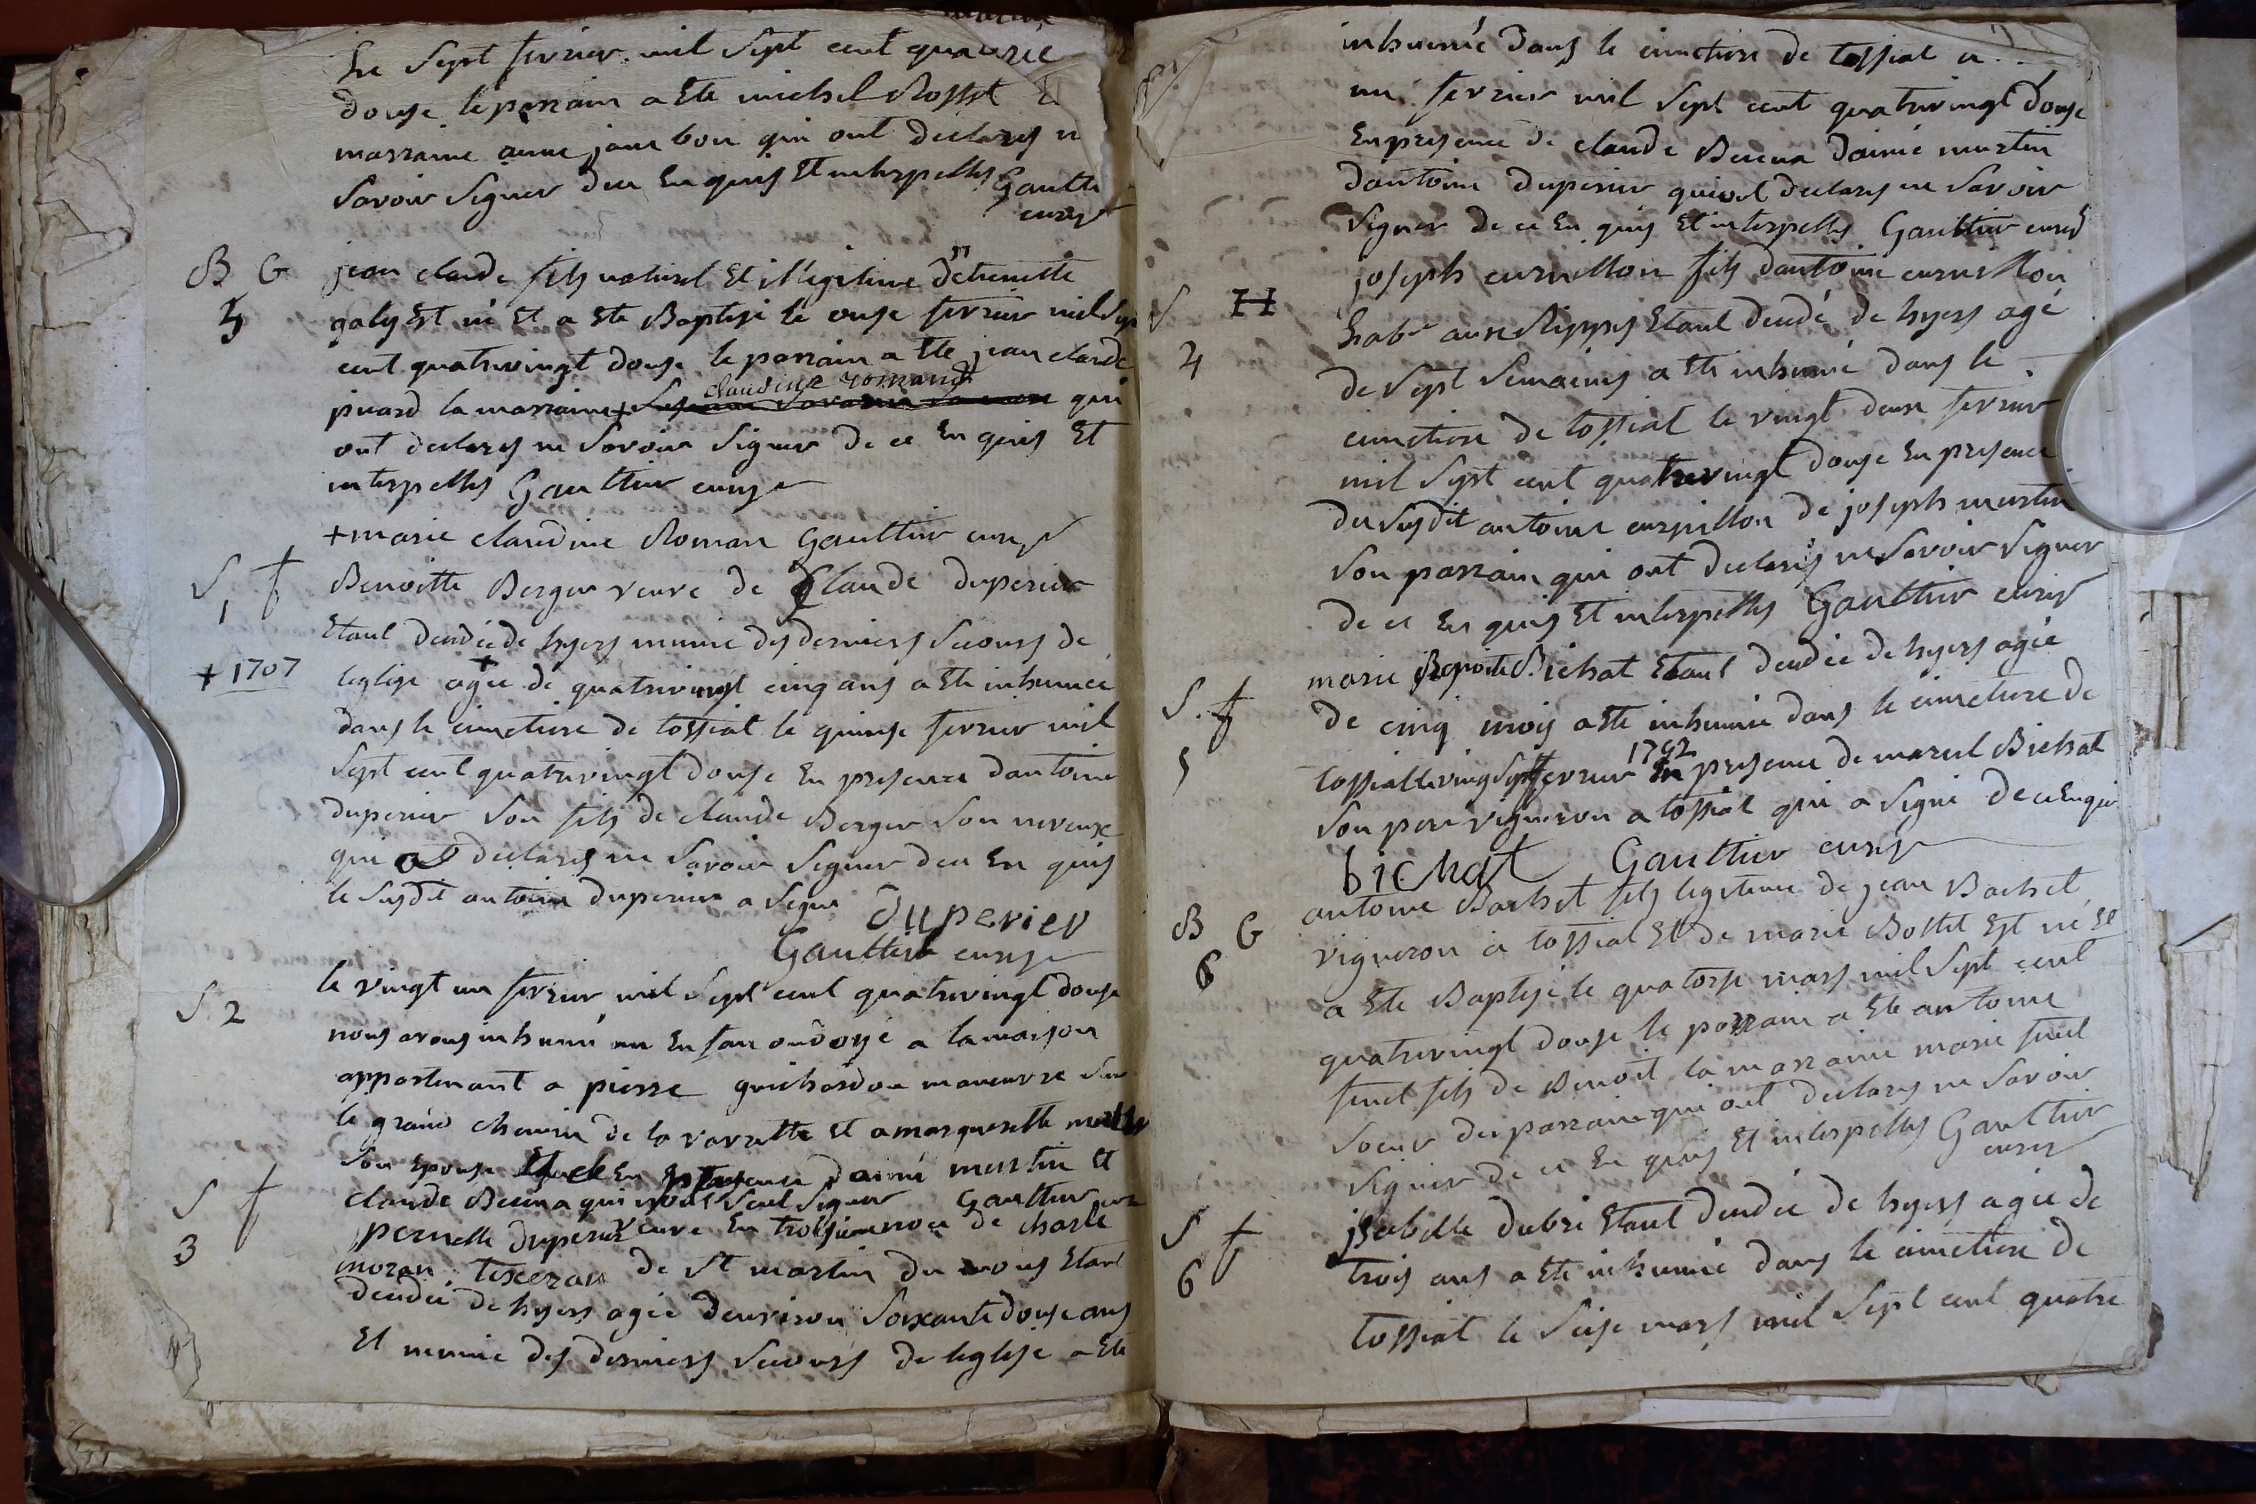 Le sept fevrier mil sept cent quatre
douse le parrain a ete michel Rosset
marraine anne jambon qui ont declarés n
savoir signer de ce enquis et interpellés Gaultie
curé
B G
5
jean claude fils naturel et illegitime detiennette
galy est né et a ete Baptisé le onse fevrier mil sept
cent quatrevingt douse le parrain a ete jean claude
pivard la marraine + claudine roman qui
ont declarés ne savoir signer de ce enquis et
interpellés Gaultier curé
+ marie claudine Roman Gaultier curé
S f
1
+ 1707
Benoitte Berger veuve de Claude duperier
etant deudée de hyers munie des derniers secours de
leglise agée + de quatrevingt cinq ans a ete inhumée
dans le cimetiere de tossiat le quinse fevrier mil
sept cent quatrevingt douse en presence dantoine
duperier son fils de claude Berger son neveux
qui declarés ne savoir signer de ce enquis
le susdit antoine duperier a signé duperier
Gaultier curé
S 2
le vingt un fevrier mil sept cent quatrevingt douse
nous avons inhumé un enfan ondoyé a la maison
appartenant a pierre guichardon maneuvre sur
le grand chemin de la vavrette et a margueritte
son epouse en presence d'aimé murtin et
claude Beceva qui signer Gaultier curé
S f
3
pernette duperier veuve en troisieme noce de charle
moran texeran de st martin du mons etant
deudée de hyers agée denviron soixante douse ans
et munie des derniers secours de leglise a ete
inhumée dans le cimetiere de tossiat
un fevrier mil sept cent quatrevingt douse
en presence de claude Beceva daimé murtin
dantoine duperier qui ont declarés ne savoir
signer de ce enquis et interpellés Gaultier curé
S
4
joseph curnillon fils dantoine curnillon
hab.t aux Rippes etant deudé de hyers agé
de sept semaines a ete inhumé dans le
cimetiere de tossiat le vingt deux fevrier
mil sept cent quatrevingt douse en presence
du susdit antoine curnillon de joseph murtin
son parrain qui ont declarés ne savoir signer
de ce enquis et interpellés Gaultier curé
S. f
5
marie Benoite Bichat etant deudée de hyers agée
de cinq mois a ete inhumée dans le cimetiere de
tossiat le vingt sept fevrier 1792 en presence de marcel Bichat
son pere vigneron a tossiat qui a signé de ce enquis
bichat Gaultier curé
B G
6
antoine Bochet fils legitime de jean Bochet
vigneron a tossiat et de marie Bottet est né et
a ete Baptisé le quatorse mars mil sept cent
quatrevingt douse le parrain a ete antoine
fils de Benoit la marraine marie
soeur du parrain qui ont declarés ne savoir
signer de ce enquis et interpellés Gaultier
curé
S f
6
jsabelle dubri etant deudée de hyers agée de
trois ans a ete inhumée dans le cimetiere de
tossiat le seise mars mil sept cent quatre